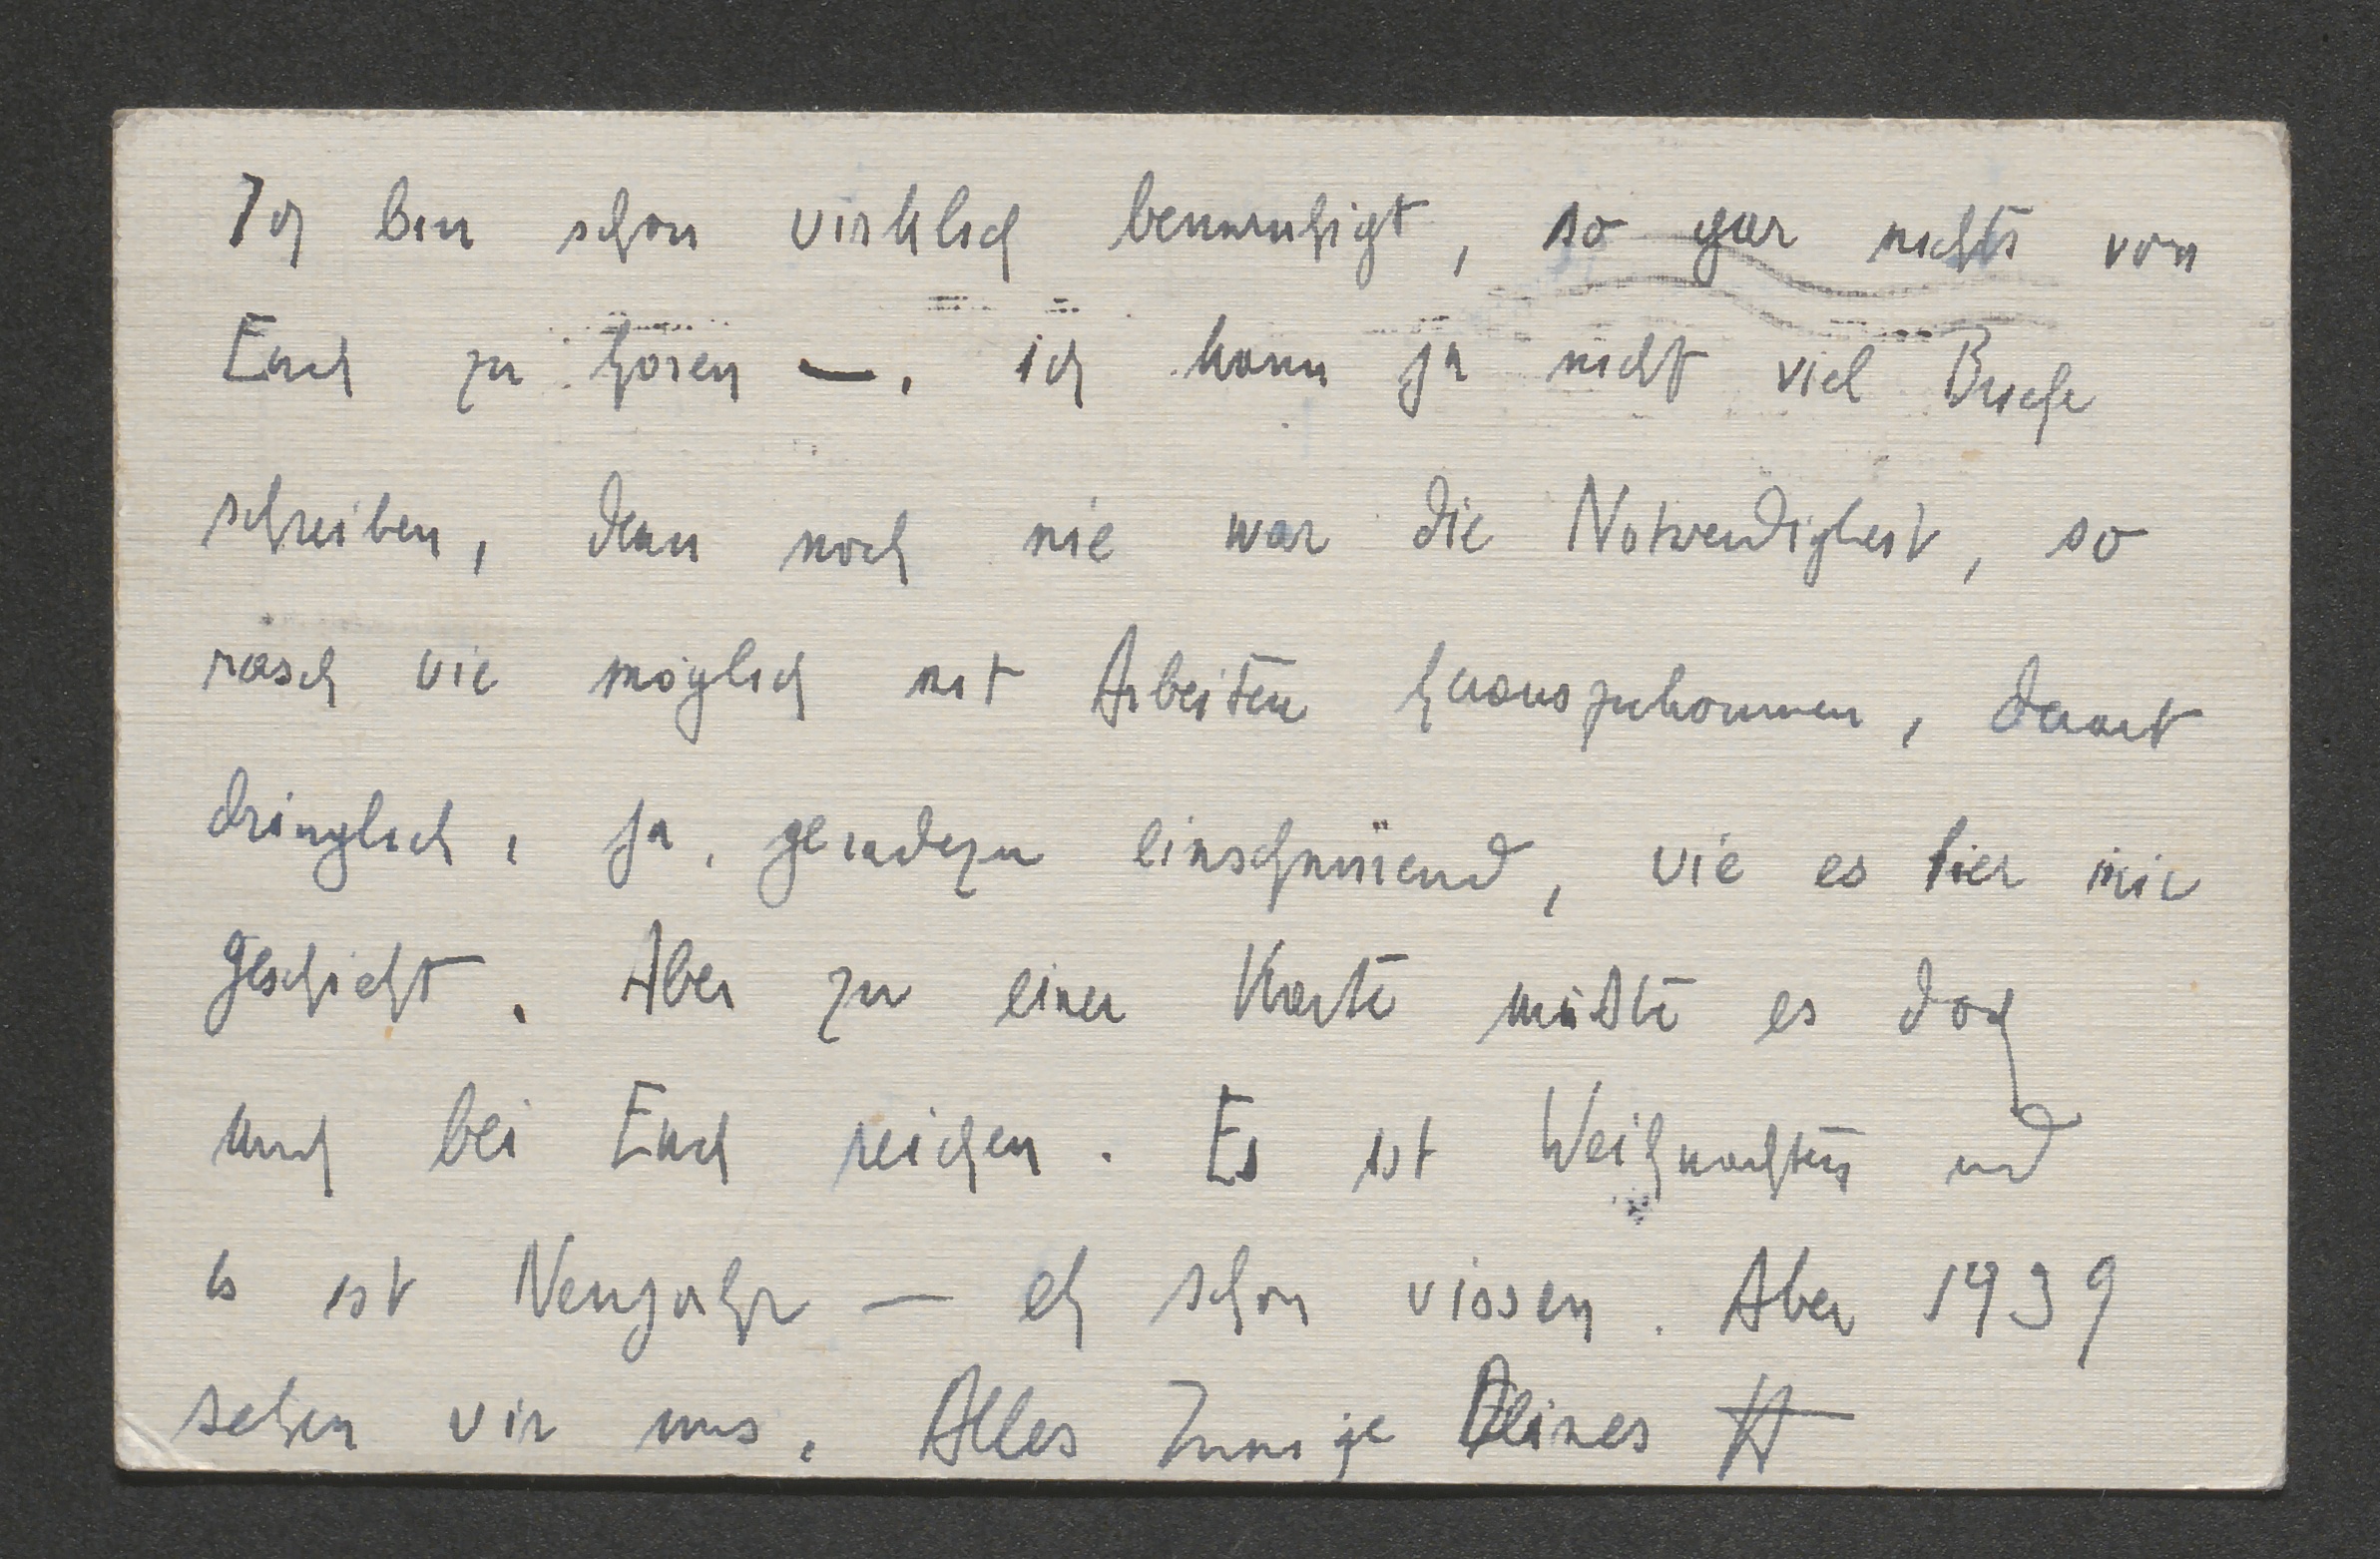 Ich bin schon wirklich beunruhigt, so gar nichts von
Euch zu hören —. ich kann ja nicht viel Briefe
schreiben, denn noch nie war die Notwendigkeit, so
rasch wie möglich mit Arbeiten herauszukommen, derart
dringlich, ja, geradezu einschnürend, wie es hier mir
geschieht. Aber zu einer Karte müßte es doch
auch bei Euch reichen. Es ist Weihnachten und
es ist Neujahr — eh schon wissen. Aber 1939
sehen wir uns. Alles Innige Deines H